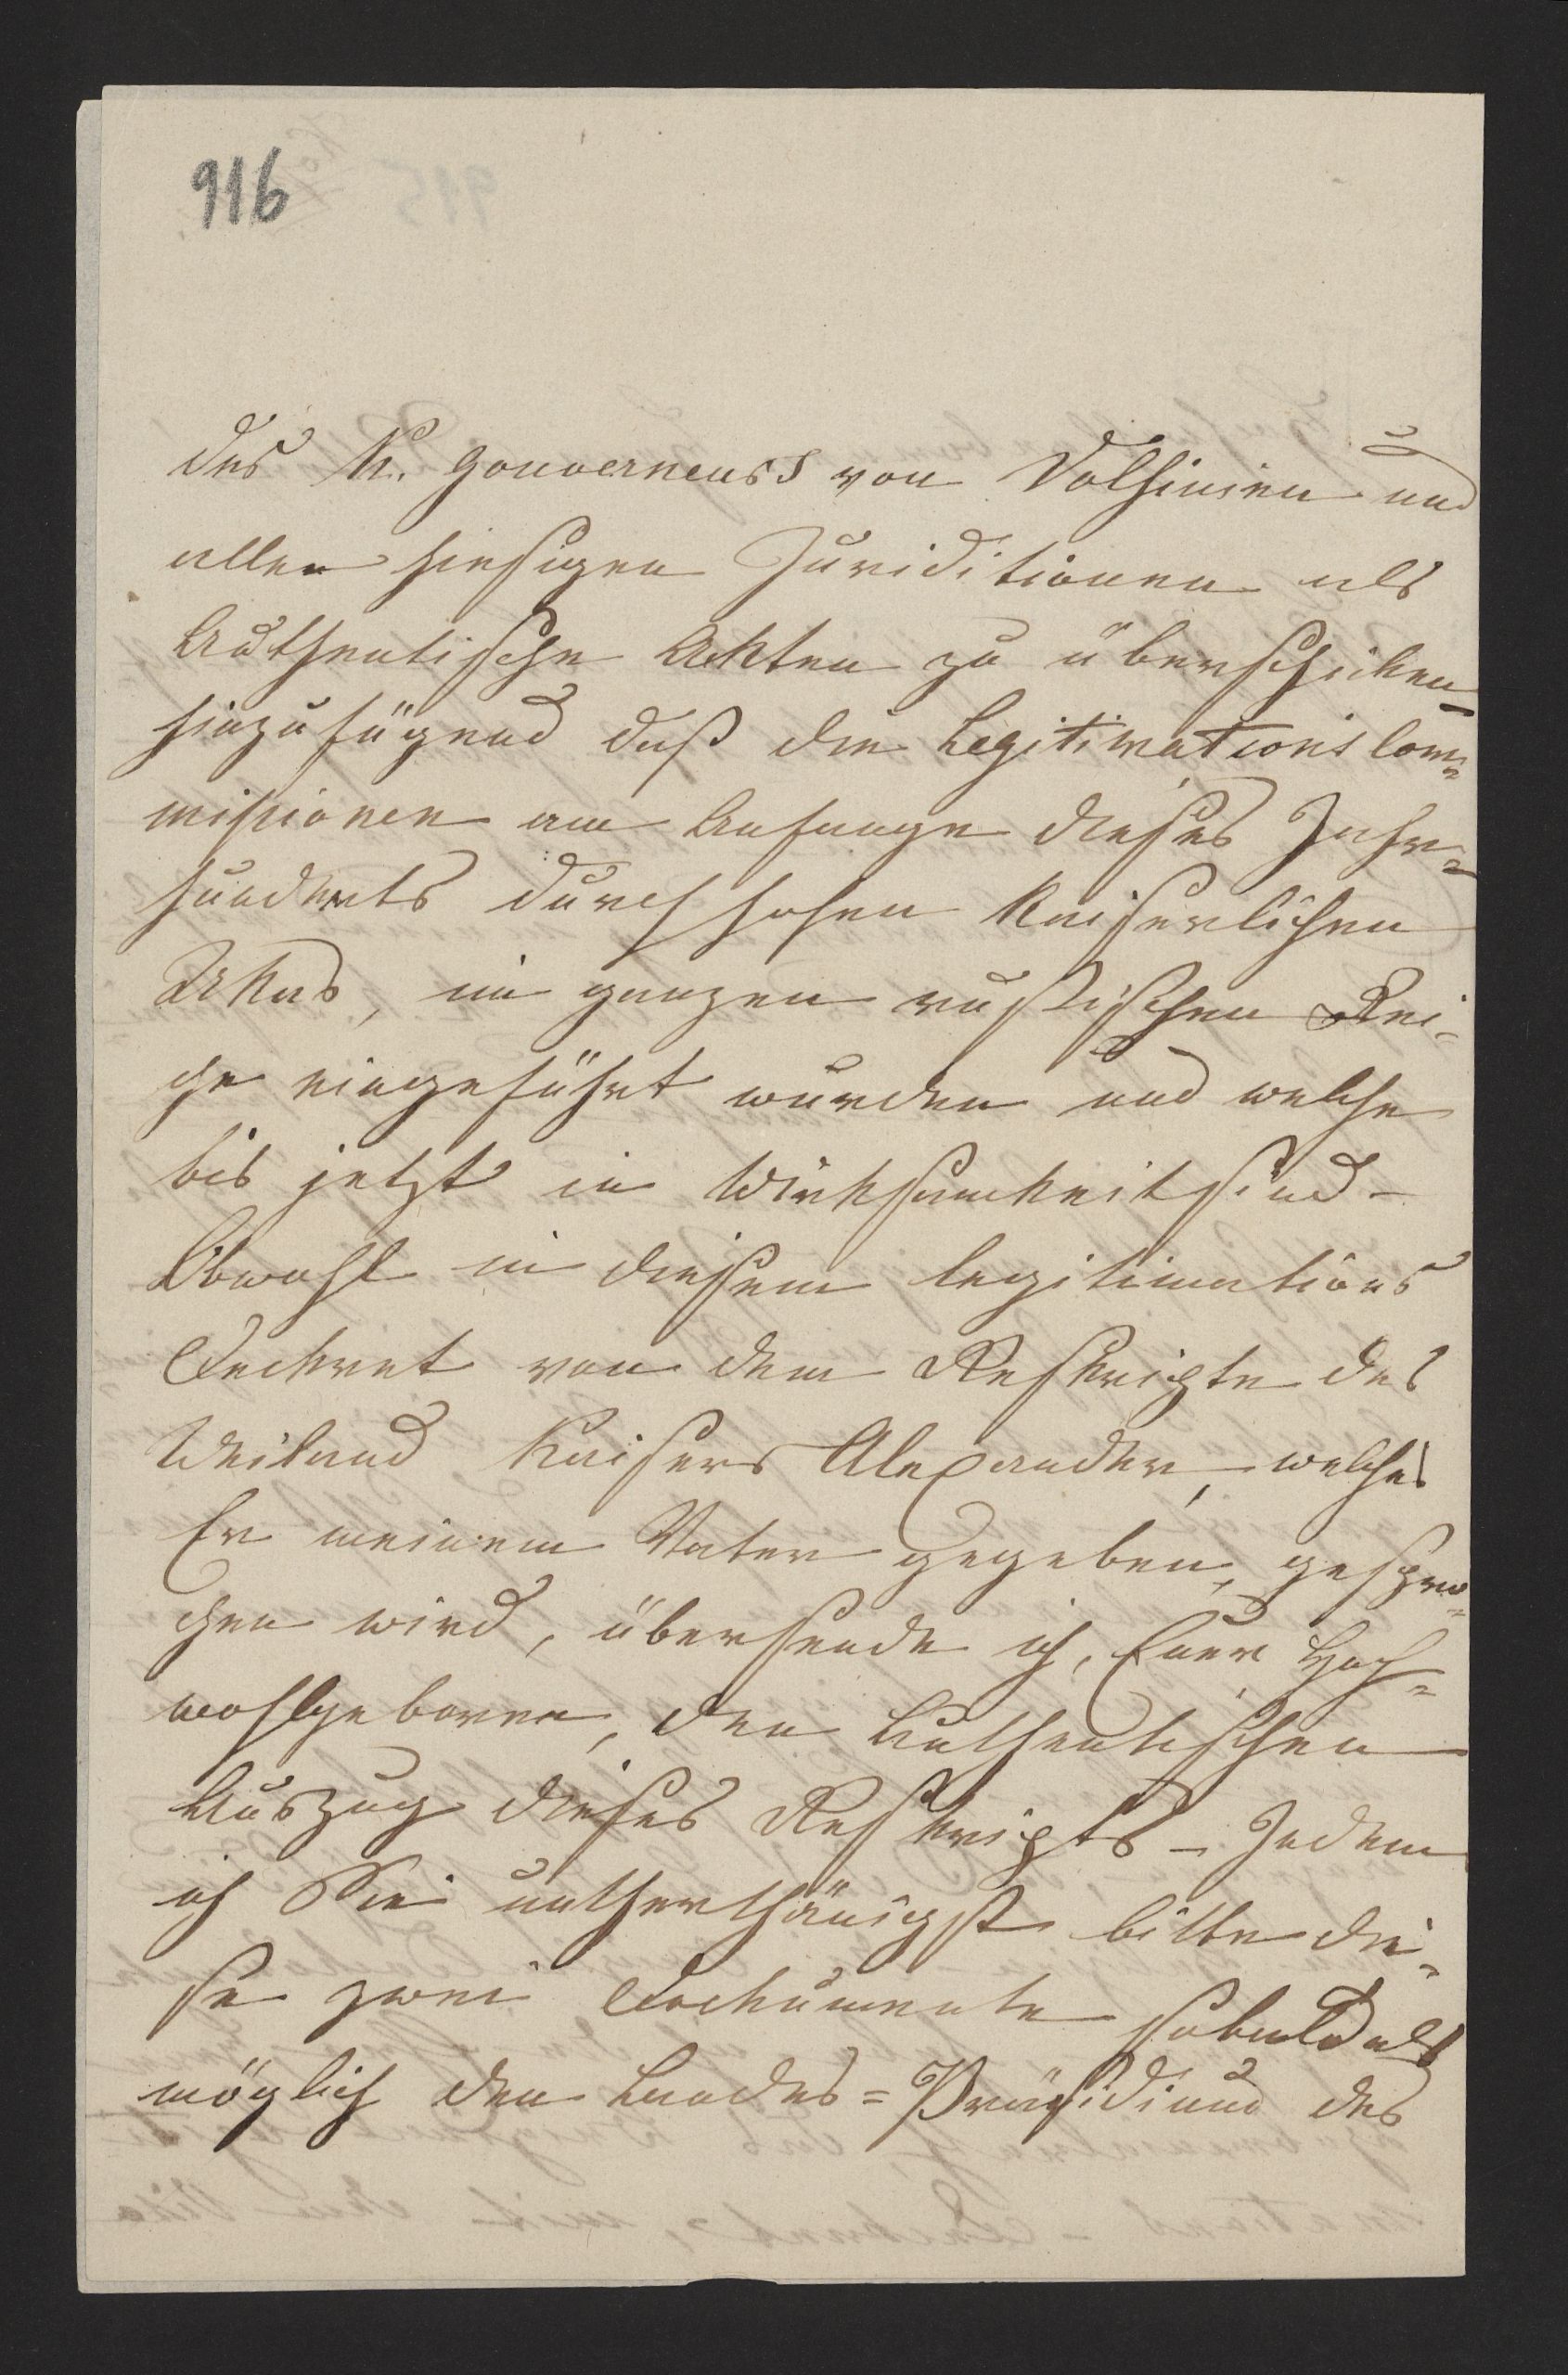 916
des K. Gouverneurs von Volhinien und
allen hiesigen Juriditionen als
Authentische Akten zu überschiken
hinzufügend daß die Legitimations Com=
missionen am Anfange dieses Jahr=
hunderts durch hohen Kaiserlichen
Ukas, im ganzen russischen Rei=
che eingeführt wurden und welche
bis jetzt in Wirksamkeit sind –
Obwohl in diesem legitimations
Deckret von dem Reskripte des
Weiland Kaisers Alexander, welches
Er meinem Vater gegeben, gespro=
chen wird, übersende ich, Euer Hoch=
wohlgeboren, den Authentischen
Auszug dieses Reskripts – Indem
ich Sie untherthänigst bitte die=
se zwei Dockumente sobald als
möglich den Landes=Präsidium des